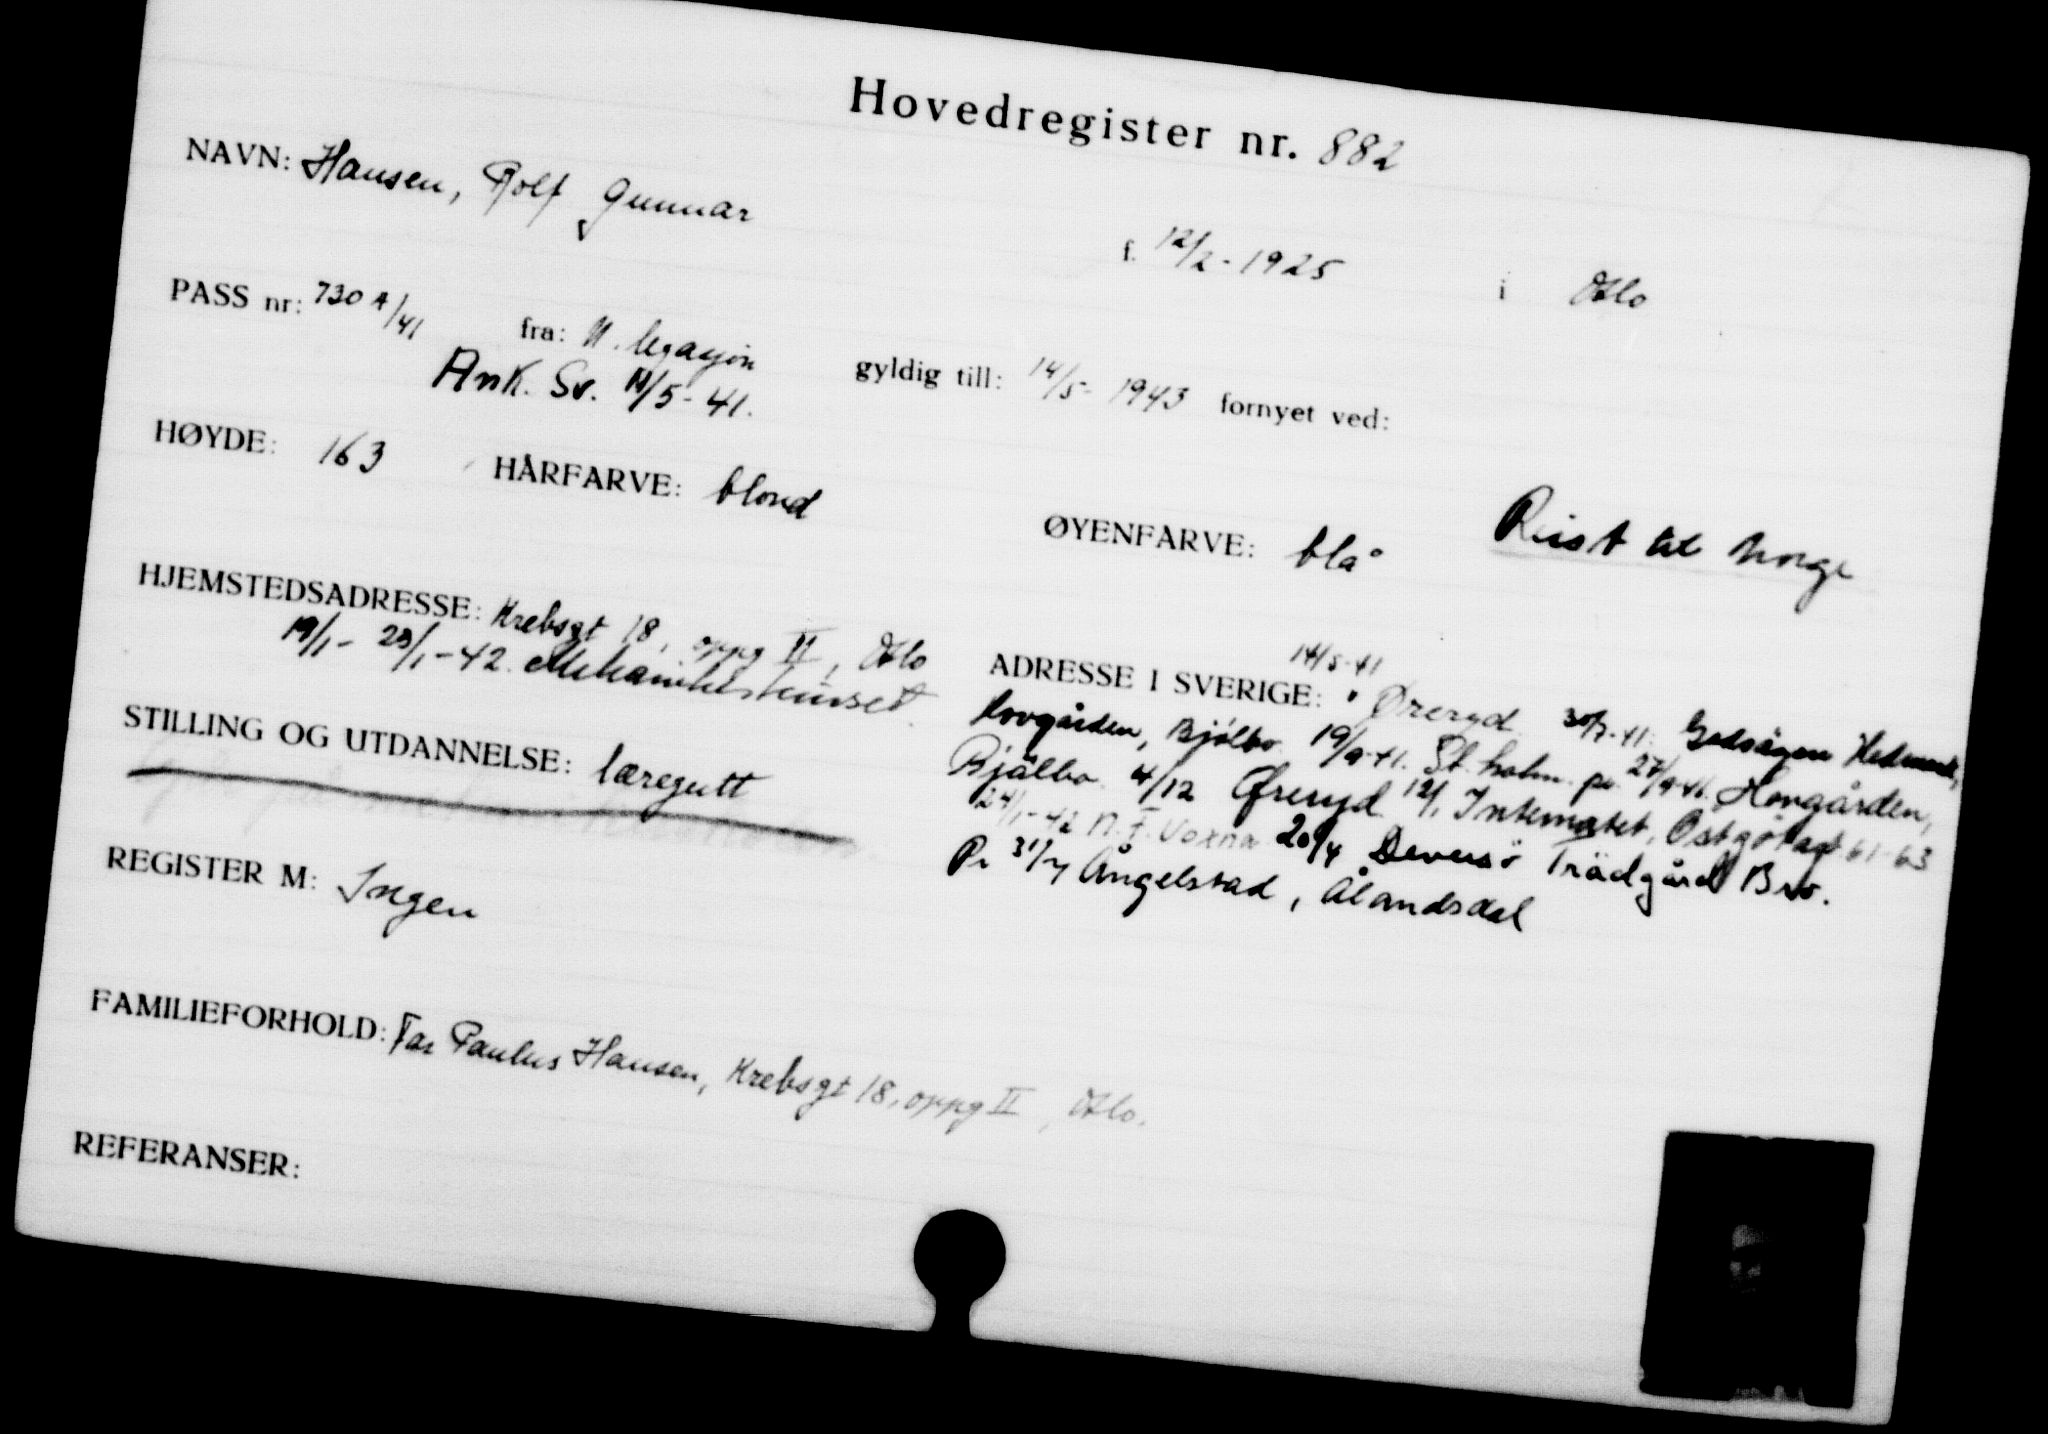 Hovedregister nr. 882
NAVN: Hansen, Rolf Gunnar
f. 12/2 - 1925 i Oslo
PASS nr: 730 A/41 fra: N. legasjon gyldig till: 14/5 - 1943 fornyet ved:
Ank. Sv. 11/5 - 41.
HØYDE: 163 HÅRFARVE: blond ØYENFARVE: blå
Reist til Norge
HJEMSTEDSADRESSE: Krebsgt 18, oppg II, Oslo
19/1 - 23/1 - 42.
STILLING OG UTDANNELSE: læregutt
REGISTER M: Ingen
FAMILIEFORHOLD: Far Paulus Hansen, Krebsgt 18, oppg II, Oslo.
REFERANSER:
14/5-41
ADRESSE I SVERIGE: Øreryd 30/7-41: Hedmark,
Hovgården, Bjölbo. 19/9-41. St.holm. pr. 27/9-41. Hovgården,
Bjälbo. 4/12 Øreryd. 12/1. Internatet, Östgötagt 61-63
24/1-42 N.F. Voxna 20/4 Deversö Trädgård Bro.
Pr 31/7 Ångelstad, Ålandsdal